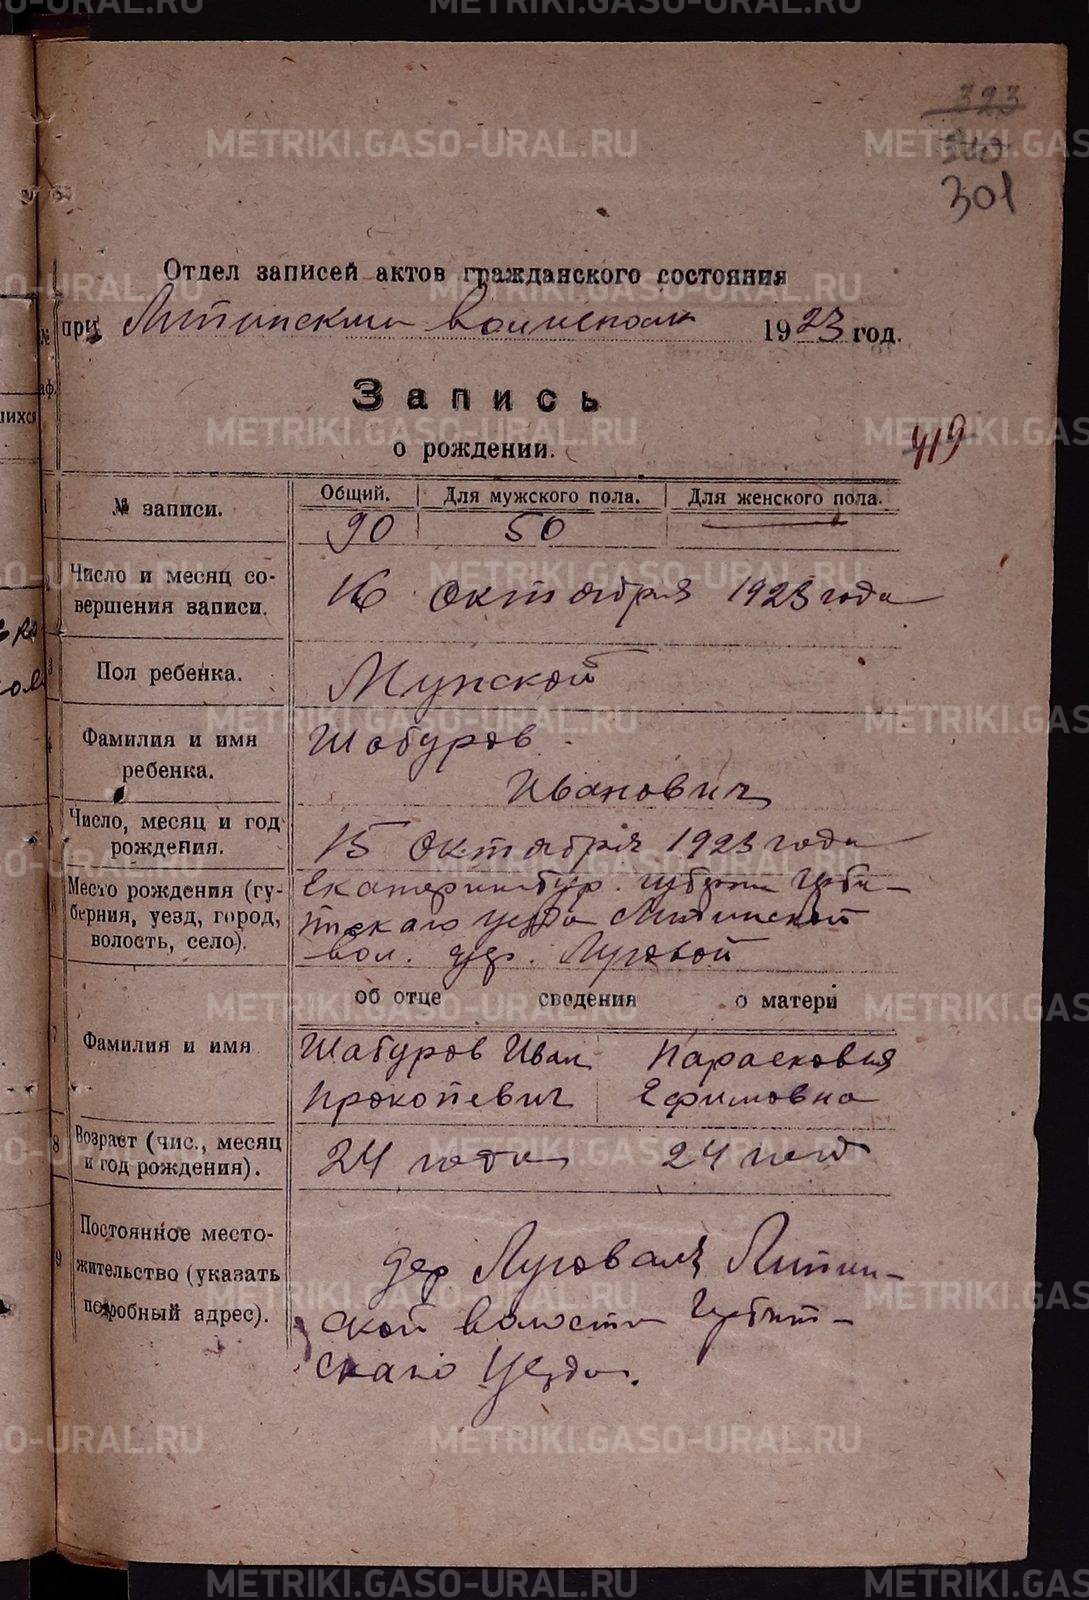 323
340
301
Отдел записей актов гражданского состояния
при Литинским волисполк 1923 год.
Запись
о рождении.
419
№ записи.
Общий. Для мужского пола. Для женского пола.
90 50 —
Число и месяц со-
вершения записи.
16 Октября 1923 года
Пол ребенка.
Мужской
Фамилия и имя
ребенка.
Шабуров
Иванович
Число, месяц и год
рождения.
15 Октября 1923 года
Место рождения (гу-
берния, уезд, город,
волость, село).
Екатеринбур. губернии Ирби-
тскаго уезда Литинской
вол. дер. Луговой
об отце сведения о матери
Фамилия и имя
Шабуров Иван
Прокопевич
Парасковия
Ефимовна
Возраст (чис., месяц
и год рождения).
24 года 24 год
Постоянное место-
жительство (указать
подробный адрес).
дер Луговая Литин-
ской волости Ирбит-
скаго Уезда.
METRIKI.GASO-URAL.RU